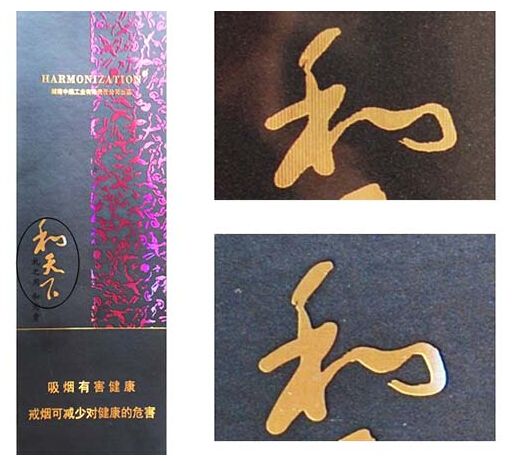 HARMONIZATION®
湖南中烟工业有限责任公司出品
和天下
吸烟有害健康
戒烟可减少对健康的危害
和
和